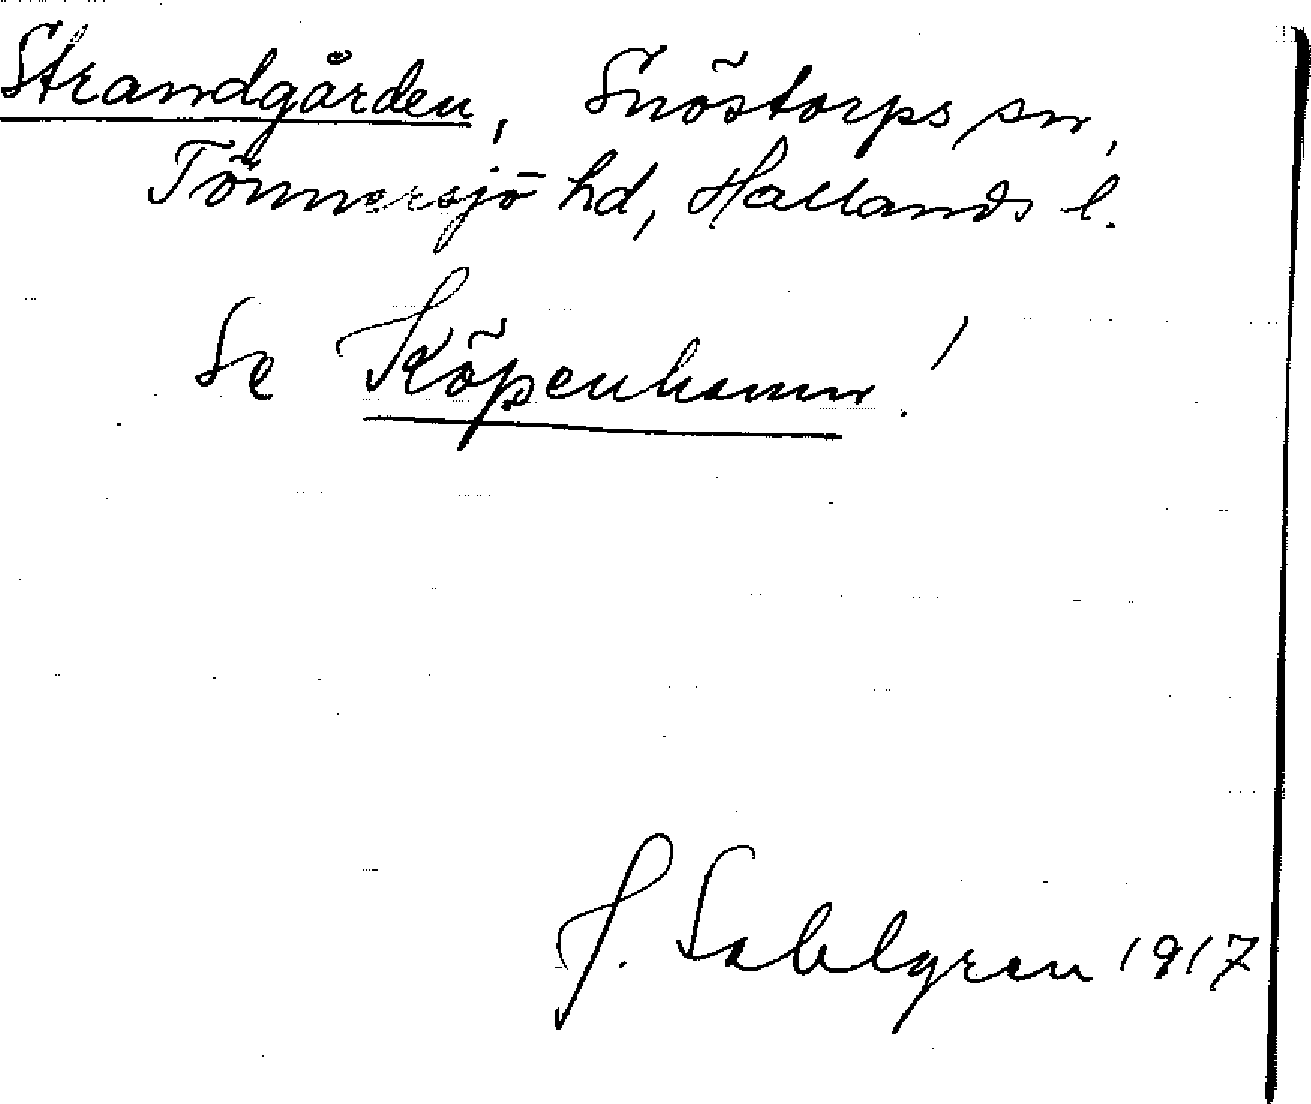 Strandgården, Snöstorps sn,
Tönnersjö hd, Hallands l.
Se Köpenhamn!
J. Sahlgren 1917